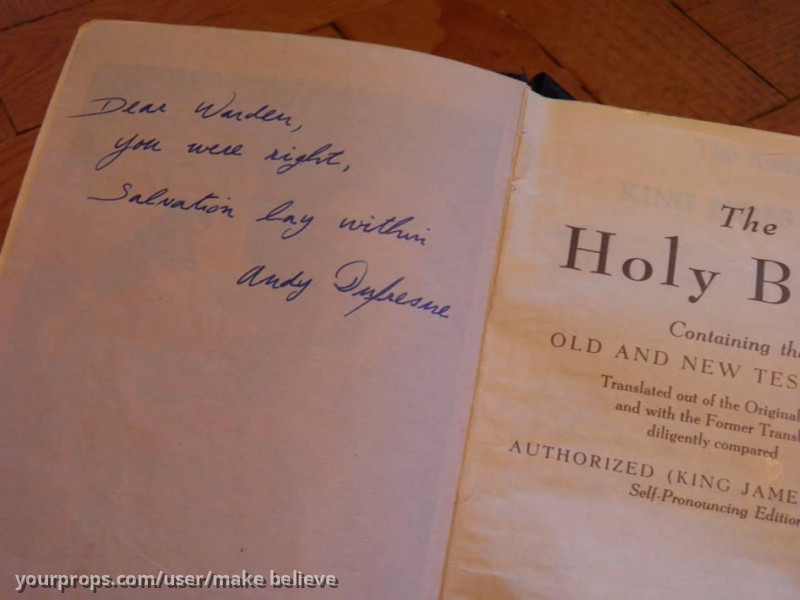 Dear Warden,
you were right,
Salvation lay within
Andy Dufresne
The
Holy B
Containing the
OLD AND NEW TES
Translated out of the Original
and with the Former Transl
diligently compared
AUTHORIZED (KING JAME
Self-Pronouncing Edition
yourprops.com/user/make believe